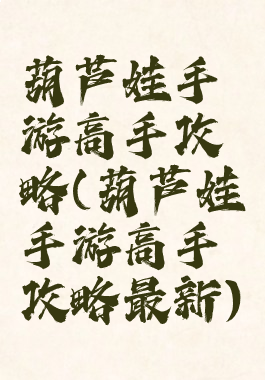 葫芦娃手
游高手攻
略(葫芦娃
手游高手
攻略最新)